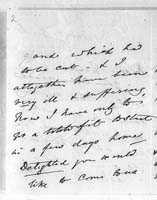 2
and which had
to be cut - & I
altogether have been
very ill & suffering,
Now I have only to
go a
in a few days home
Delighted you would
like to come